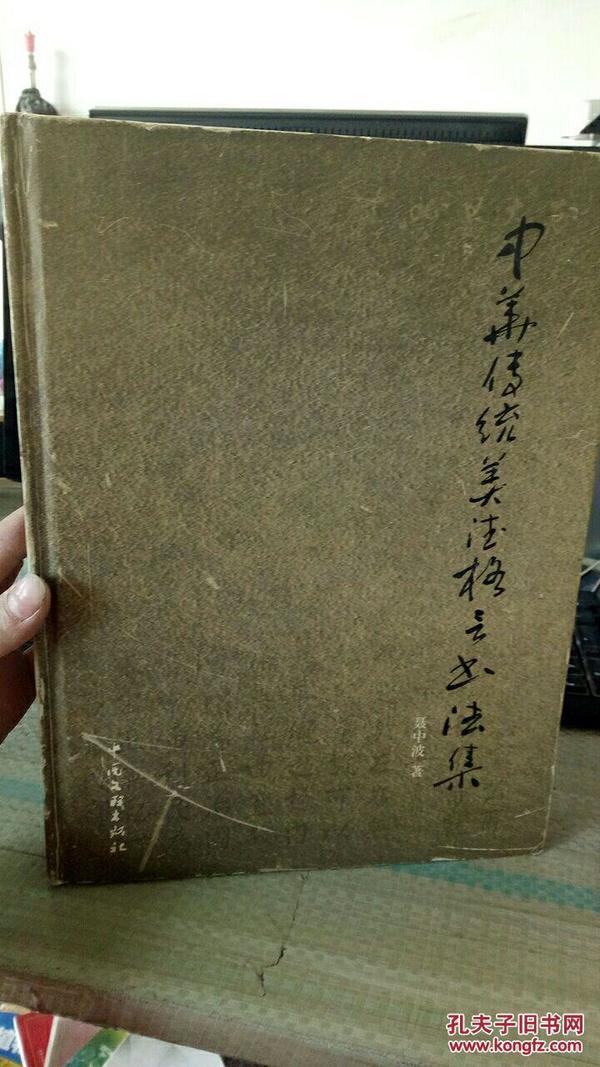 中华传统美德格言书法集
聂中波 著
中国文联出版社
孔夫子旧书网
www.kongfz.com